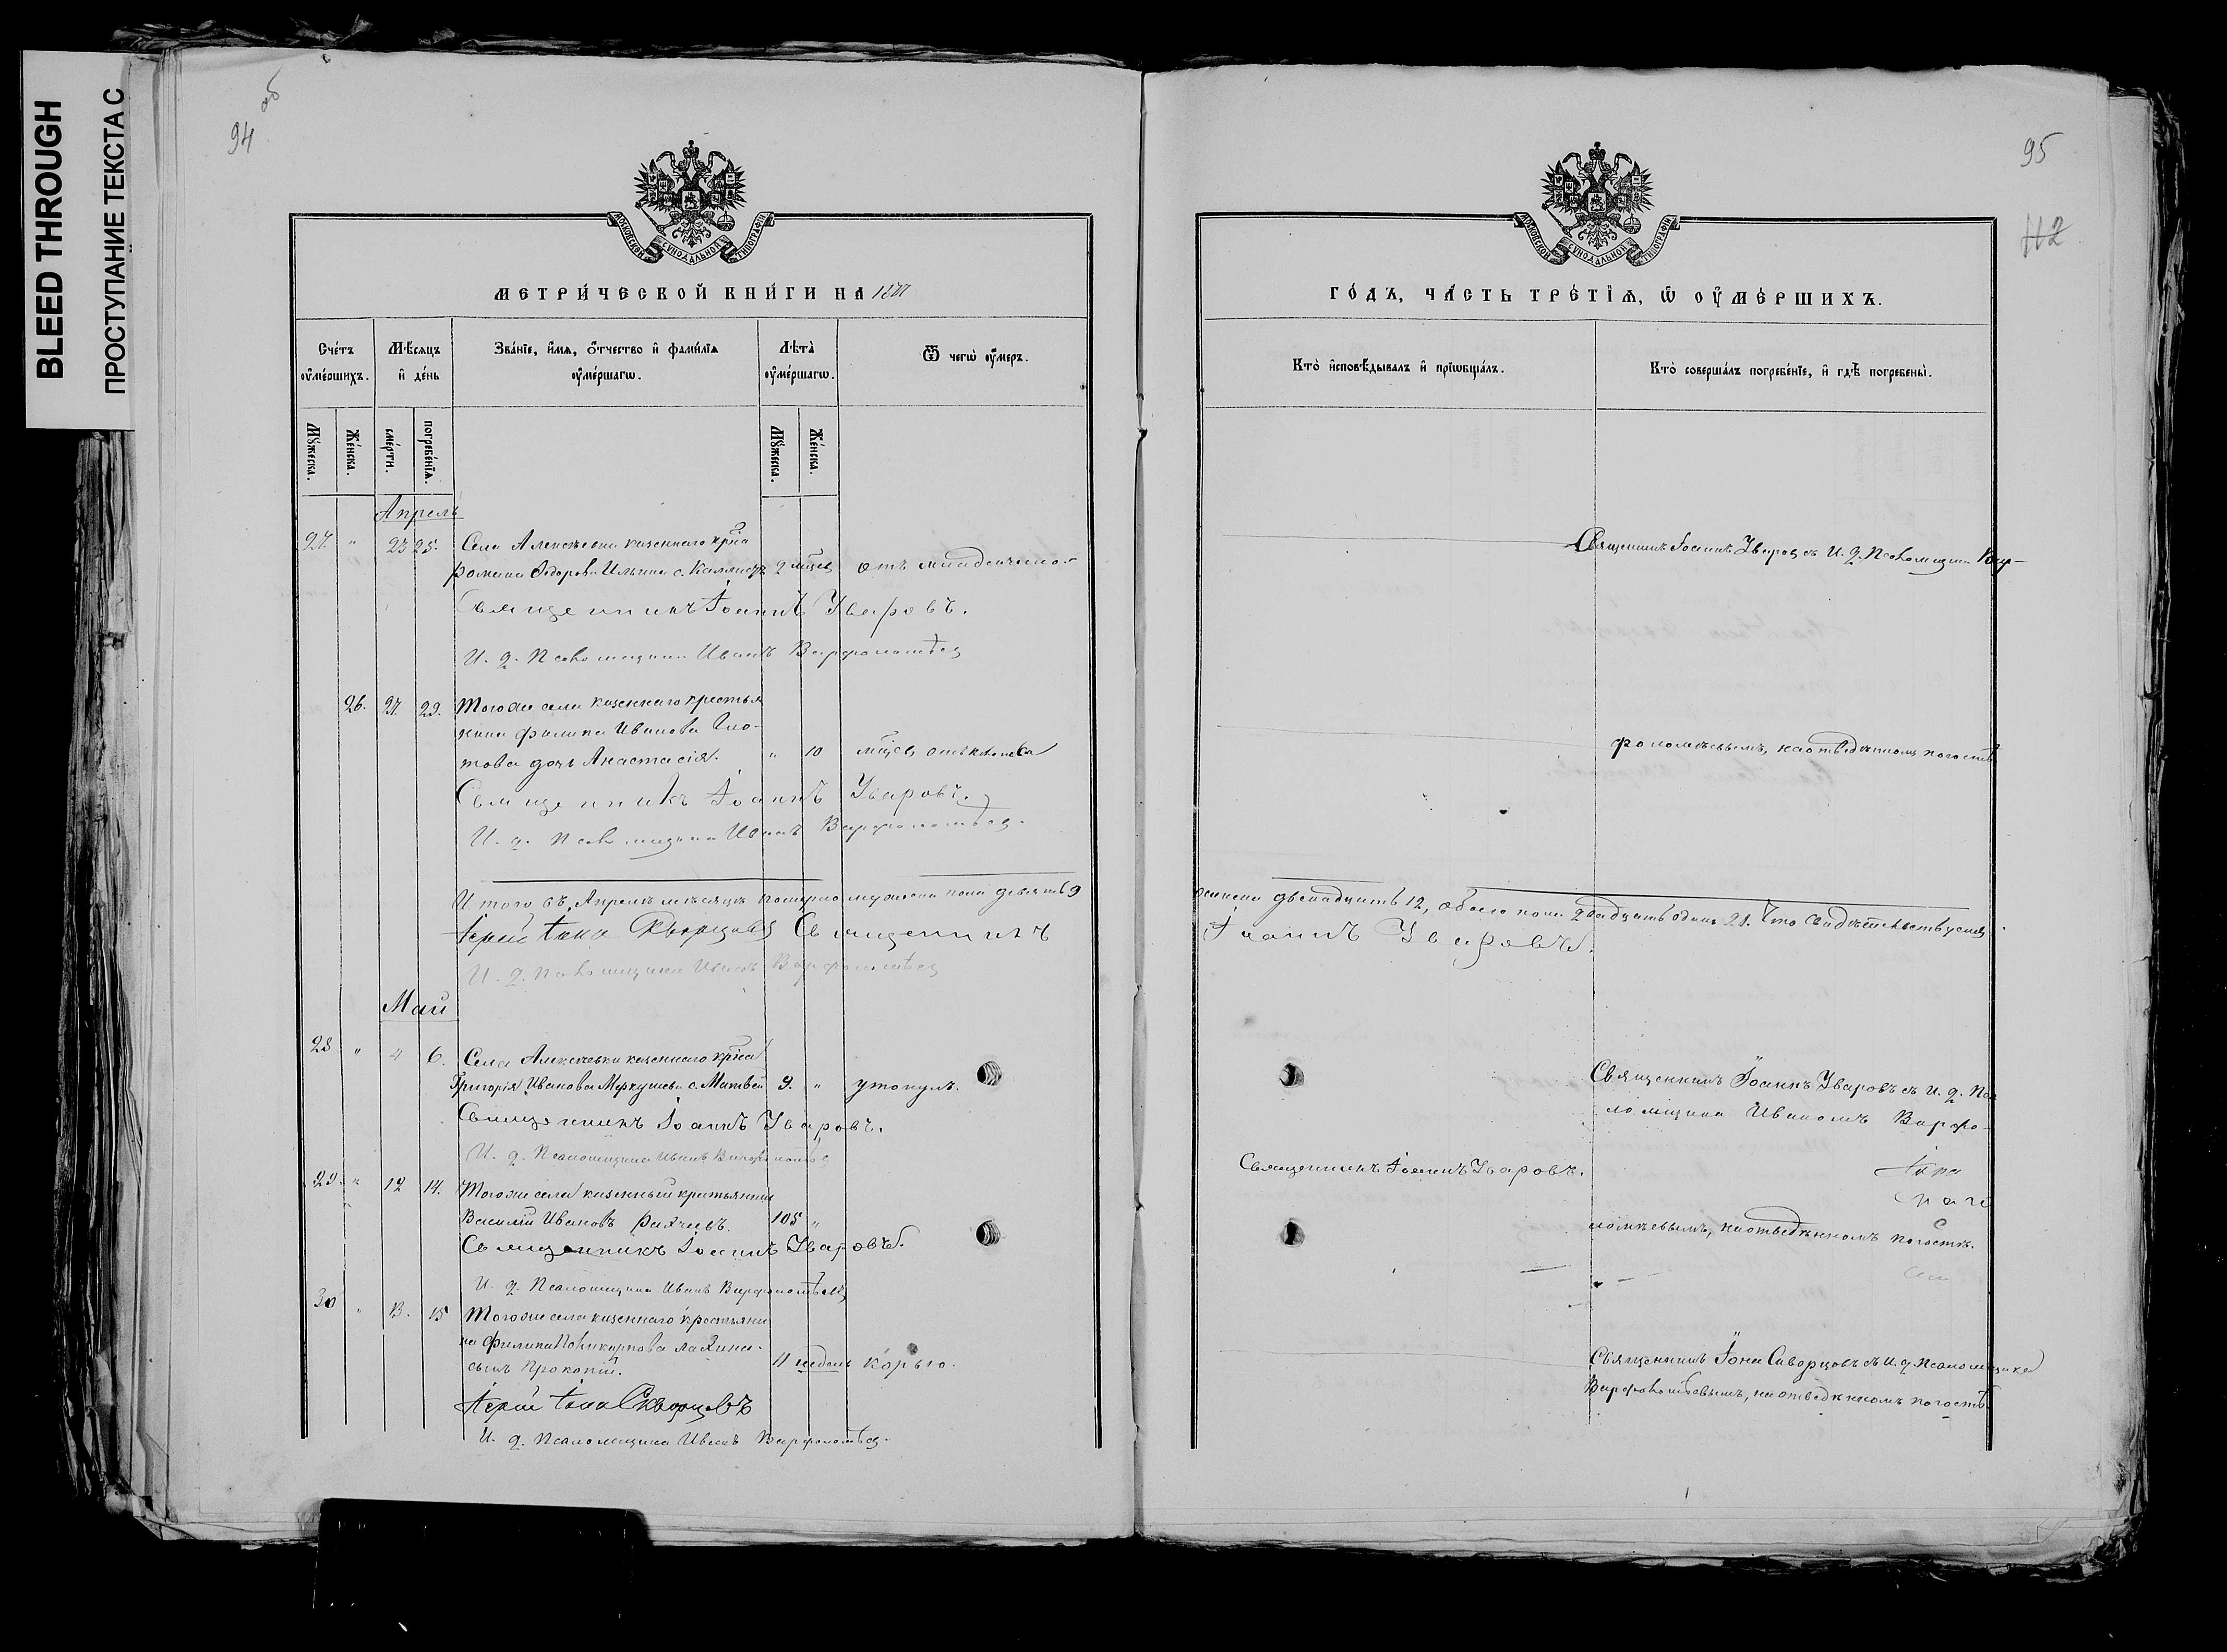 BLEED THROUGH
ПРОСТУПАНИЕ ТЕКСТА С
94 об
МОСКОВСКОЙ СѴНОДАЛЬНОЙ ТИПОГРАФІИ
МЕТРИ́ЧЕСКОЙ КНИ́ГИ НА
Сче́тъ оу҆ме́ршихъ.
Мѣ́сяцъ и҆ де́нь
Зва́нїе, и҆́мѧ, ѻ҆́тчество и҆ фами́лїѧ оу҆ме́ршагѡ.
Лѣта̀ оу҆ме́ршагѡ.
Ѿ чегѡ̀ оу҆́меръ.
Мꙋ́жеска.
Же́нска.
сме́рти.
погребе́нїѧ.
Мꙋ́жеска.
Же́нска.
Апрель
27. " 23 25. Села Алексѣевки казеннаго кр҃на
Романа Ѳедорова Ильина с. 2 мѣсц отъ младенческо-
Священникъ Іоаннъ Уваровъ.
И. д. Псаломщика Иванъ Варфоломѣев
26. 27. 29. Того же села казеннаго крестья
нина Филипа Иванова
това дочь Анастасія. " 10 мѣсц отъ
Священникъ Іоаннъ Уваровъ.
И. д. Псаломщика Иванъ Варфоломѣев.
Итого въ Апрелѣ мѣсяцѣ померло мужеска пола девять 9
Іерей Іона Скворцовъ Священникъ
И. д. Псаломщика Иванъ Варфоломѣев
Май
28 " 4 6. Села Алексѣевки казеннаго кр҃на
Григорія Иванова Меркушева с. Матвей 9. " утонулъ.
Священникъ Іоаннъ Уваровъ.
И. д. Псаломщика Иванъ Варфоломѣев
29. " 12 14. Того же села казенный крестьянинъ
Василій Ивановъ 105 "
Священникъ Іоаннъ Уваровъ.
И. д. Псаломщика Иванъ Варфоломѣев
30 " 13. 15 Того же села казеннаго крестьяни
на Филипа Поликарпова
сынъ Прокопій. 11 недель Корью.
Іерей Іона Скворцовъ
И. д. Псаломщика Иванъ Варфоломѣев.
95
112
МОСКОВСКОЙ СѴНОДАЛЬНОЙ ТИПОГРАФІИ
ГО́ДЪ, ЧА́СТЬ ТРЕ́ТЇѦ, Ѡ҆ ОУ҆МЕ́РШИХЪ.
Кто̀ и҆сповѣ́дывалъ и҆ прїѡбща́лъ.
Кто̀ соверша́лъ погребе́нїе, и҆ гдѣ̀ погребены̀.
Священникъ Іоаннъ Уваров съ И. д. Псаломщика Вар-
фоломѣевымъ, на отведенномъ погостѣ
женска двенадцать 12, обоего пола двадцать одинъ 21. Что свидѣтельствуемъ
Іоаннъ Уваровъ.
Священникъ Іоаннъ Уваровъ съ И. д. Пса
ломщика Иваномъ Варфо-
Священникъ Іоаннъ Уваровъ.
ломѣевымъ, на отведенномъ погостѣ.
Священникъ Іона Скворцовъ съ И. д. псаломщика
Варфоломѣевымъ, на отведенномъ погостѣ